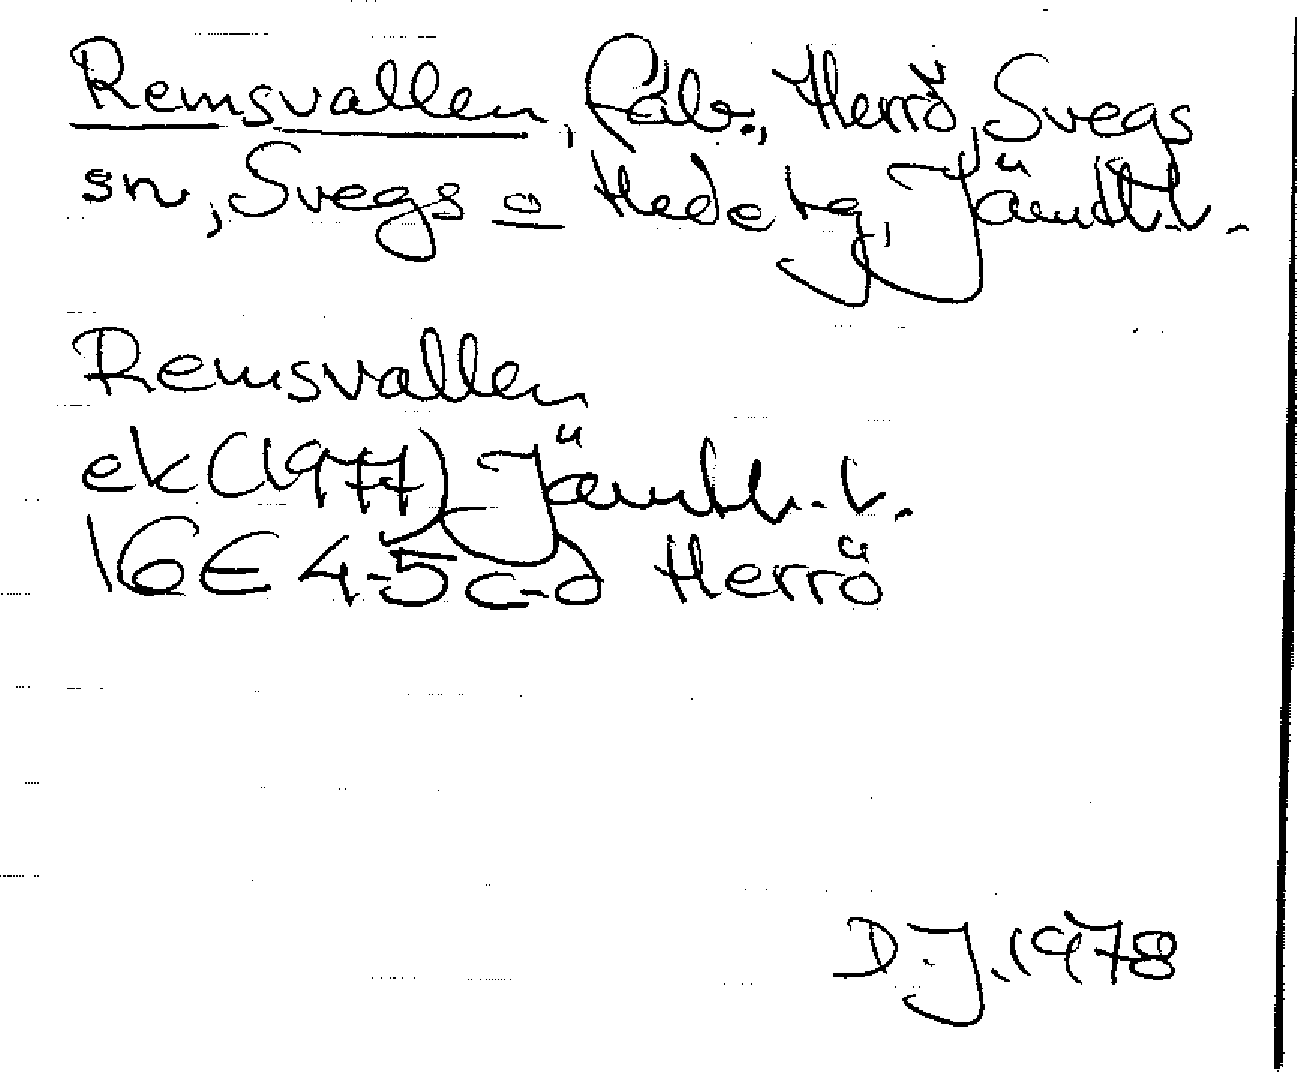 Remsvallen, fäb., Herrö, Svegs
sn, Svegs o Hede tg, Jämtl. l.
Remsvallen
ek (1977) Jämtl. l.
16E 4-5 c-d Herrö
D.J. 1978